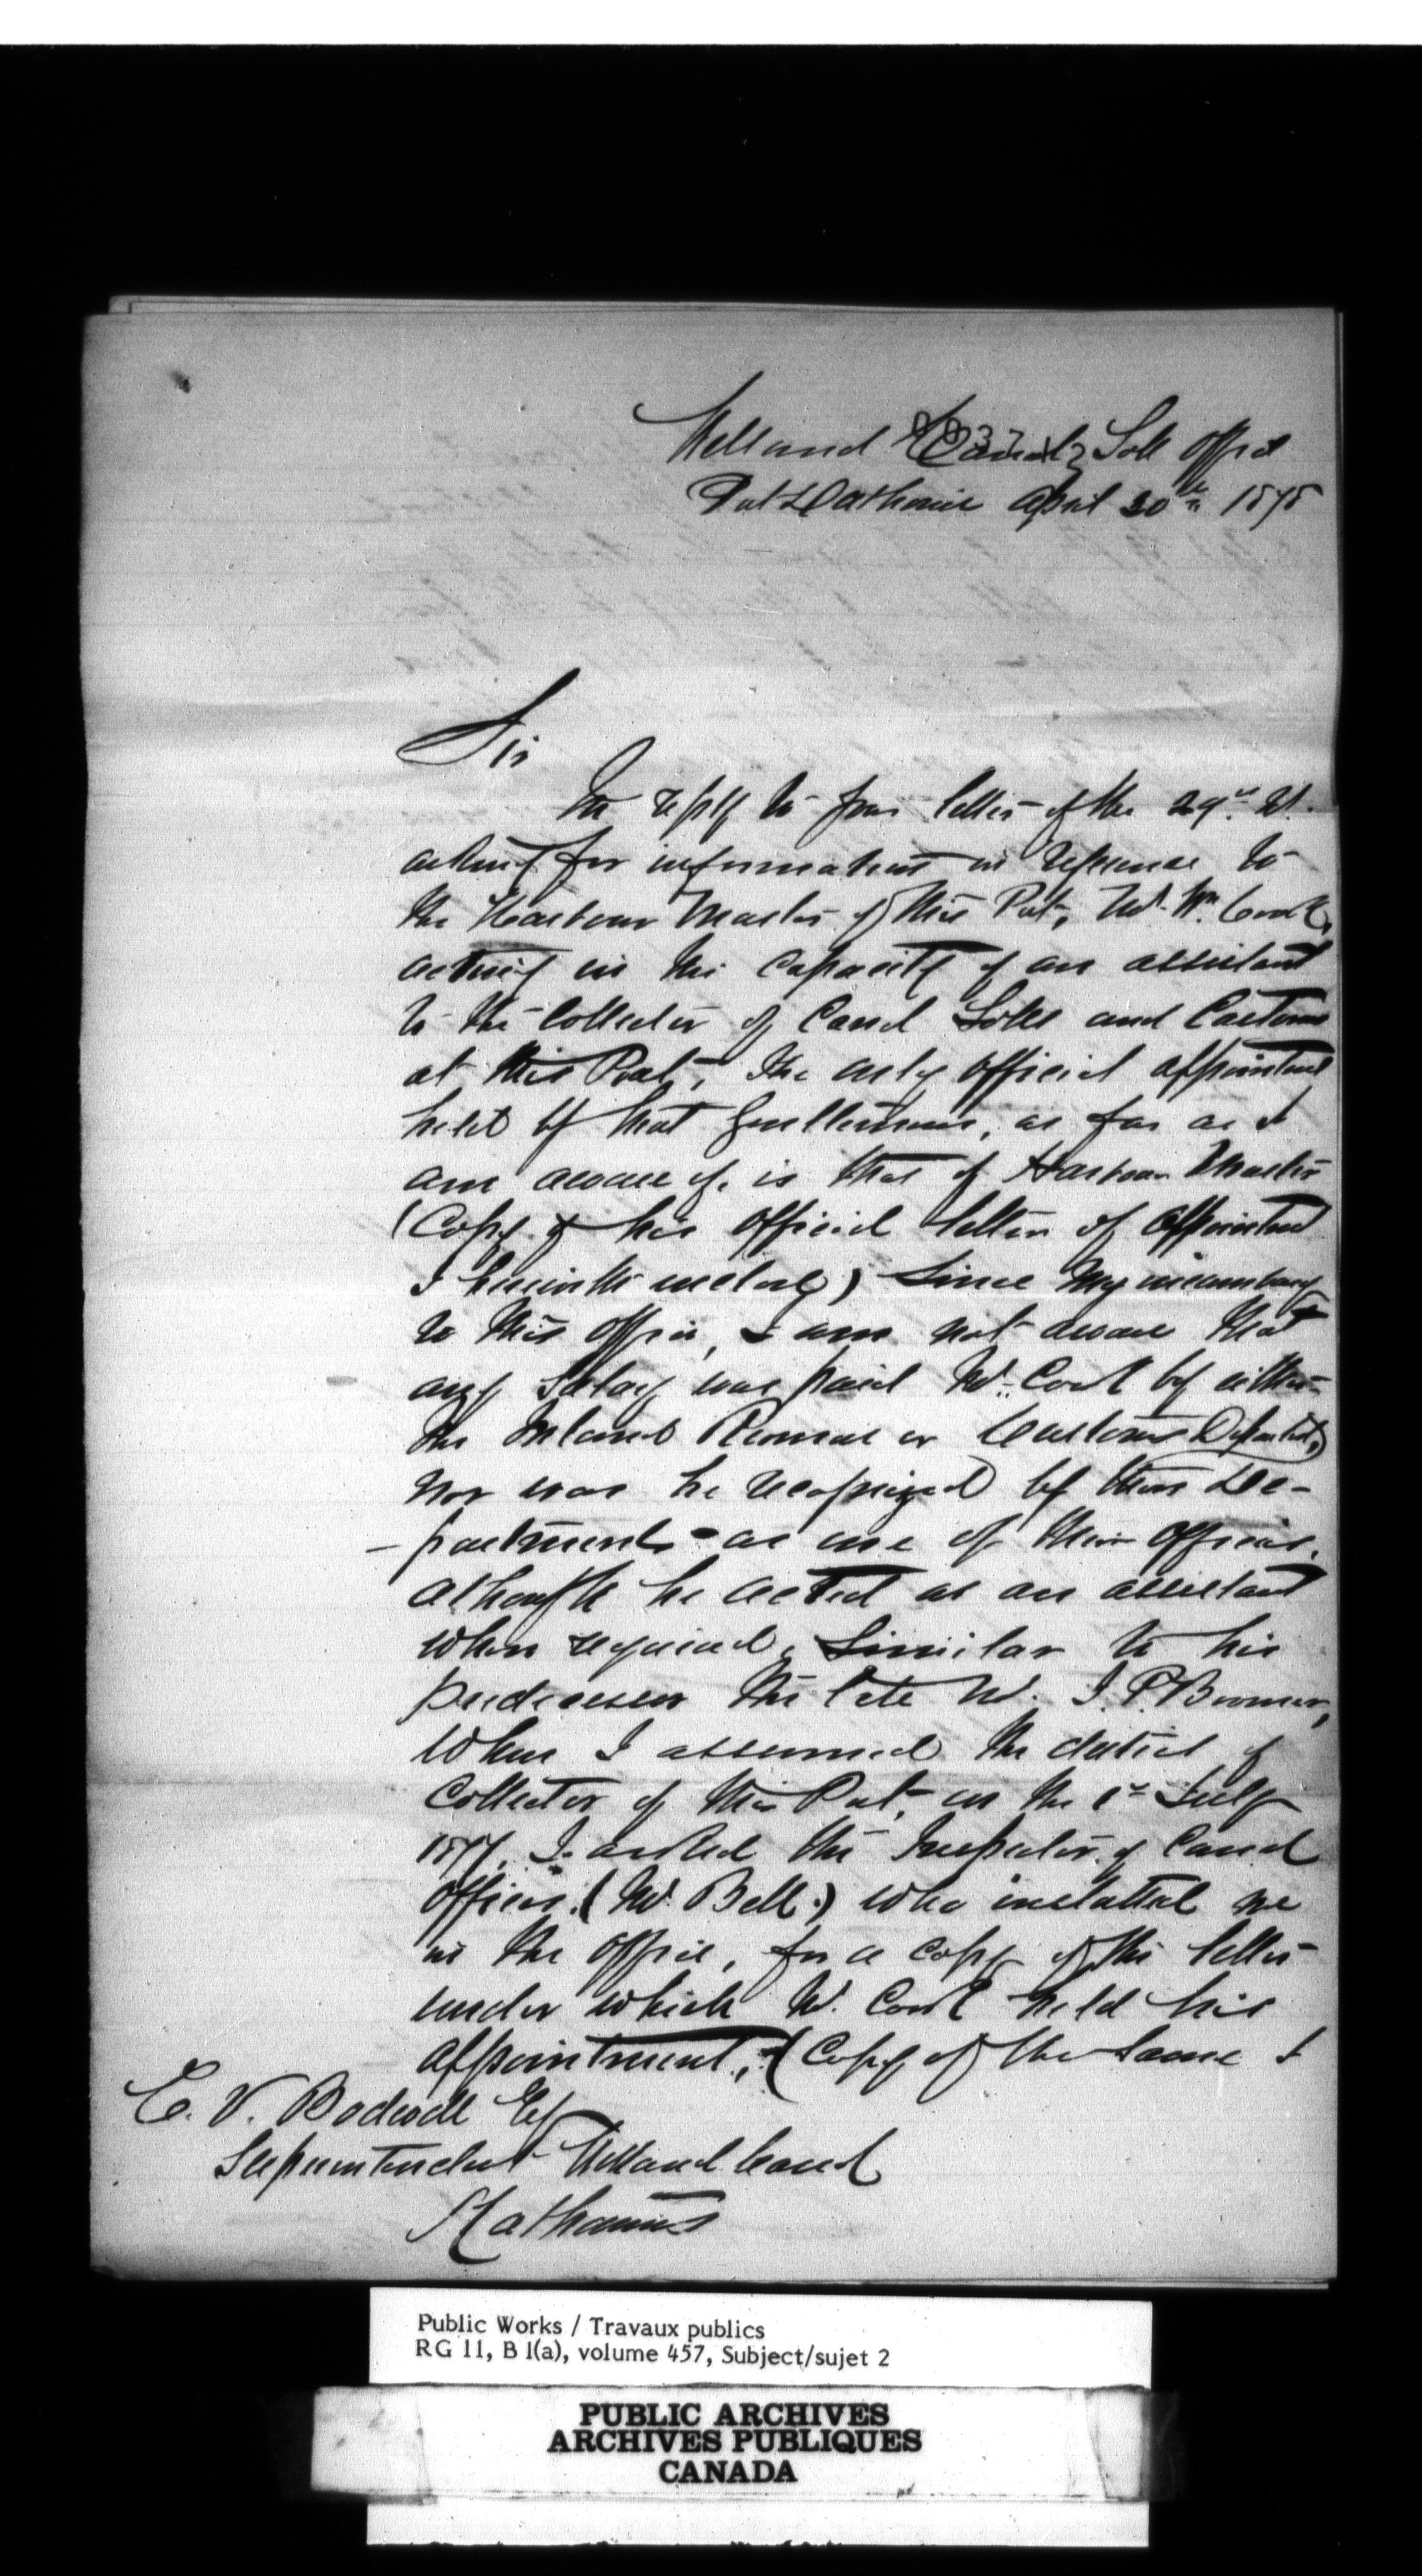 Welland Canal Toll Office
Port Dalhousie April 30th 1878
Sir
In reply to your letter of the 29th
asking for information in reference to
the Harbour Master of this Port, Mr. Wm. Cook,
acting in the capacity of an assistant
to the Collector of Canal Tolls and Customs
at this Port, the only official appointment
held by that Gentleman, as far as I
am aware of, is that of Harbour Master
(Copy of his official letter of appointment
I herewith enclose) Since my incumbency
to this office, I am not aware that
any salary was paid Mr. Cook by either
the Inland Revenue or Customs
nor was he recognized by them De-
-partments as one of their officers,
although he acted as an assistant
when required, similar to his
predecessor the late Mr. J. P. Boomer,
When I assumed the duties of
Collector of this Port, on the 1st July
I asked the Inspector of Canal
Offices, (Mr. Bell.) who installed me
in the office, for a copy of the letter
under which Mr. Cook held his
appointment, (Copy of the same I
E. V. Bodwell Esq
Superintendent Welland Canal
St Catharines
Public Works / Travaux publics
RG 11, B 1(a), volume 457, Subject/sujet 2
PUBLIC ARCHIVES
ARCHIVES PUBLIQUES
CANADA